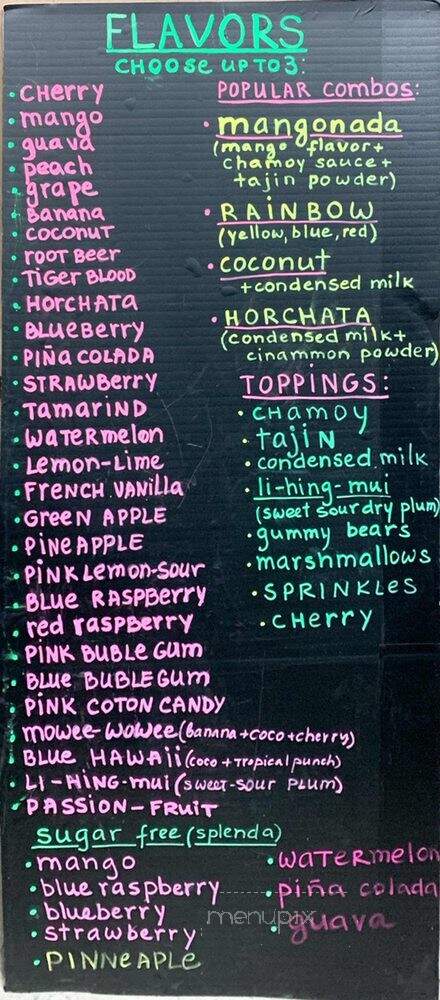 FLAVORS
CHOOSE UP TO 3:
• CHERRY
• mango
• guava
• peach
• grape
• BANANA
• COCONUT
• ROOT BEER
• TIGER BLOOD
• HORCHATA
• BLUEBERRY
• PIÑA COLADA
• STRAWBERRY
• TAMARIND
• WATERmelon
• Lemon-Lime
• FRENCH VANILLA
• GREEN APPLE
• PINEAPPLE
• PINK Lemon-sour
• BLUE RASPBERRY
• red raspberry
• PINK BUBLE GUM
• BLUE BUBLE GUM
• PINK COTON CANDY
• mowee-wowee (Banana+coco+cherry)
• BLUE HAWAii (coco + Tropical punch)
• LI-HING-mui (SWEET-SOUR PLUM)
• PASSION-FRUIT
POPULAR combos:
• mangonada
(mango flavor+
chamoy sauce+
tajin powder)
• RAiNBOW
(yellow, blue, red)
• coconut
+condensed milk
• HORCHATA
(condensed milk+
cinammon powder)
TOPPINGS:
• CHAMOY
• tajiN
• condensed milk
• li-hing-mui
(sweet sour dry plum)
• gummy bears
• marshmallows
• SPRINKLES
• CHERRY
sugar free (splenda)
• mango
• blue raspberry
• blueberry
• strawberry
• PINNEAPLE
• WATERmelon
• piña colada
• guava
menupix